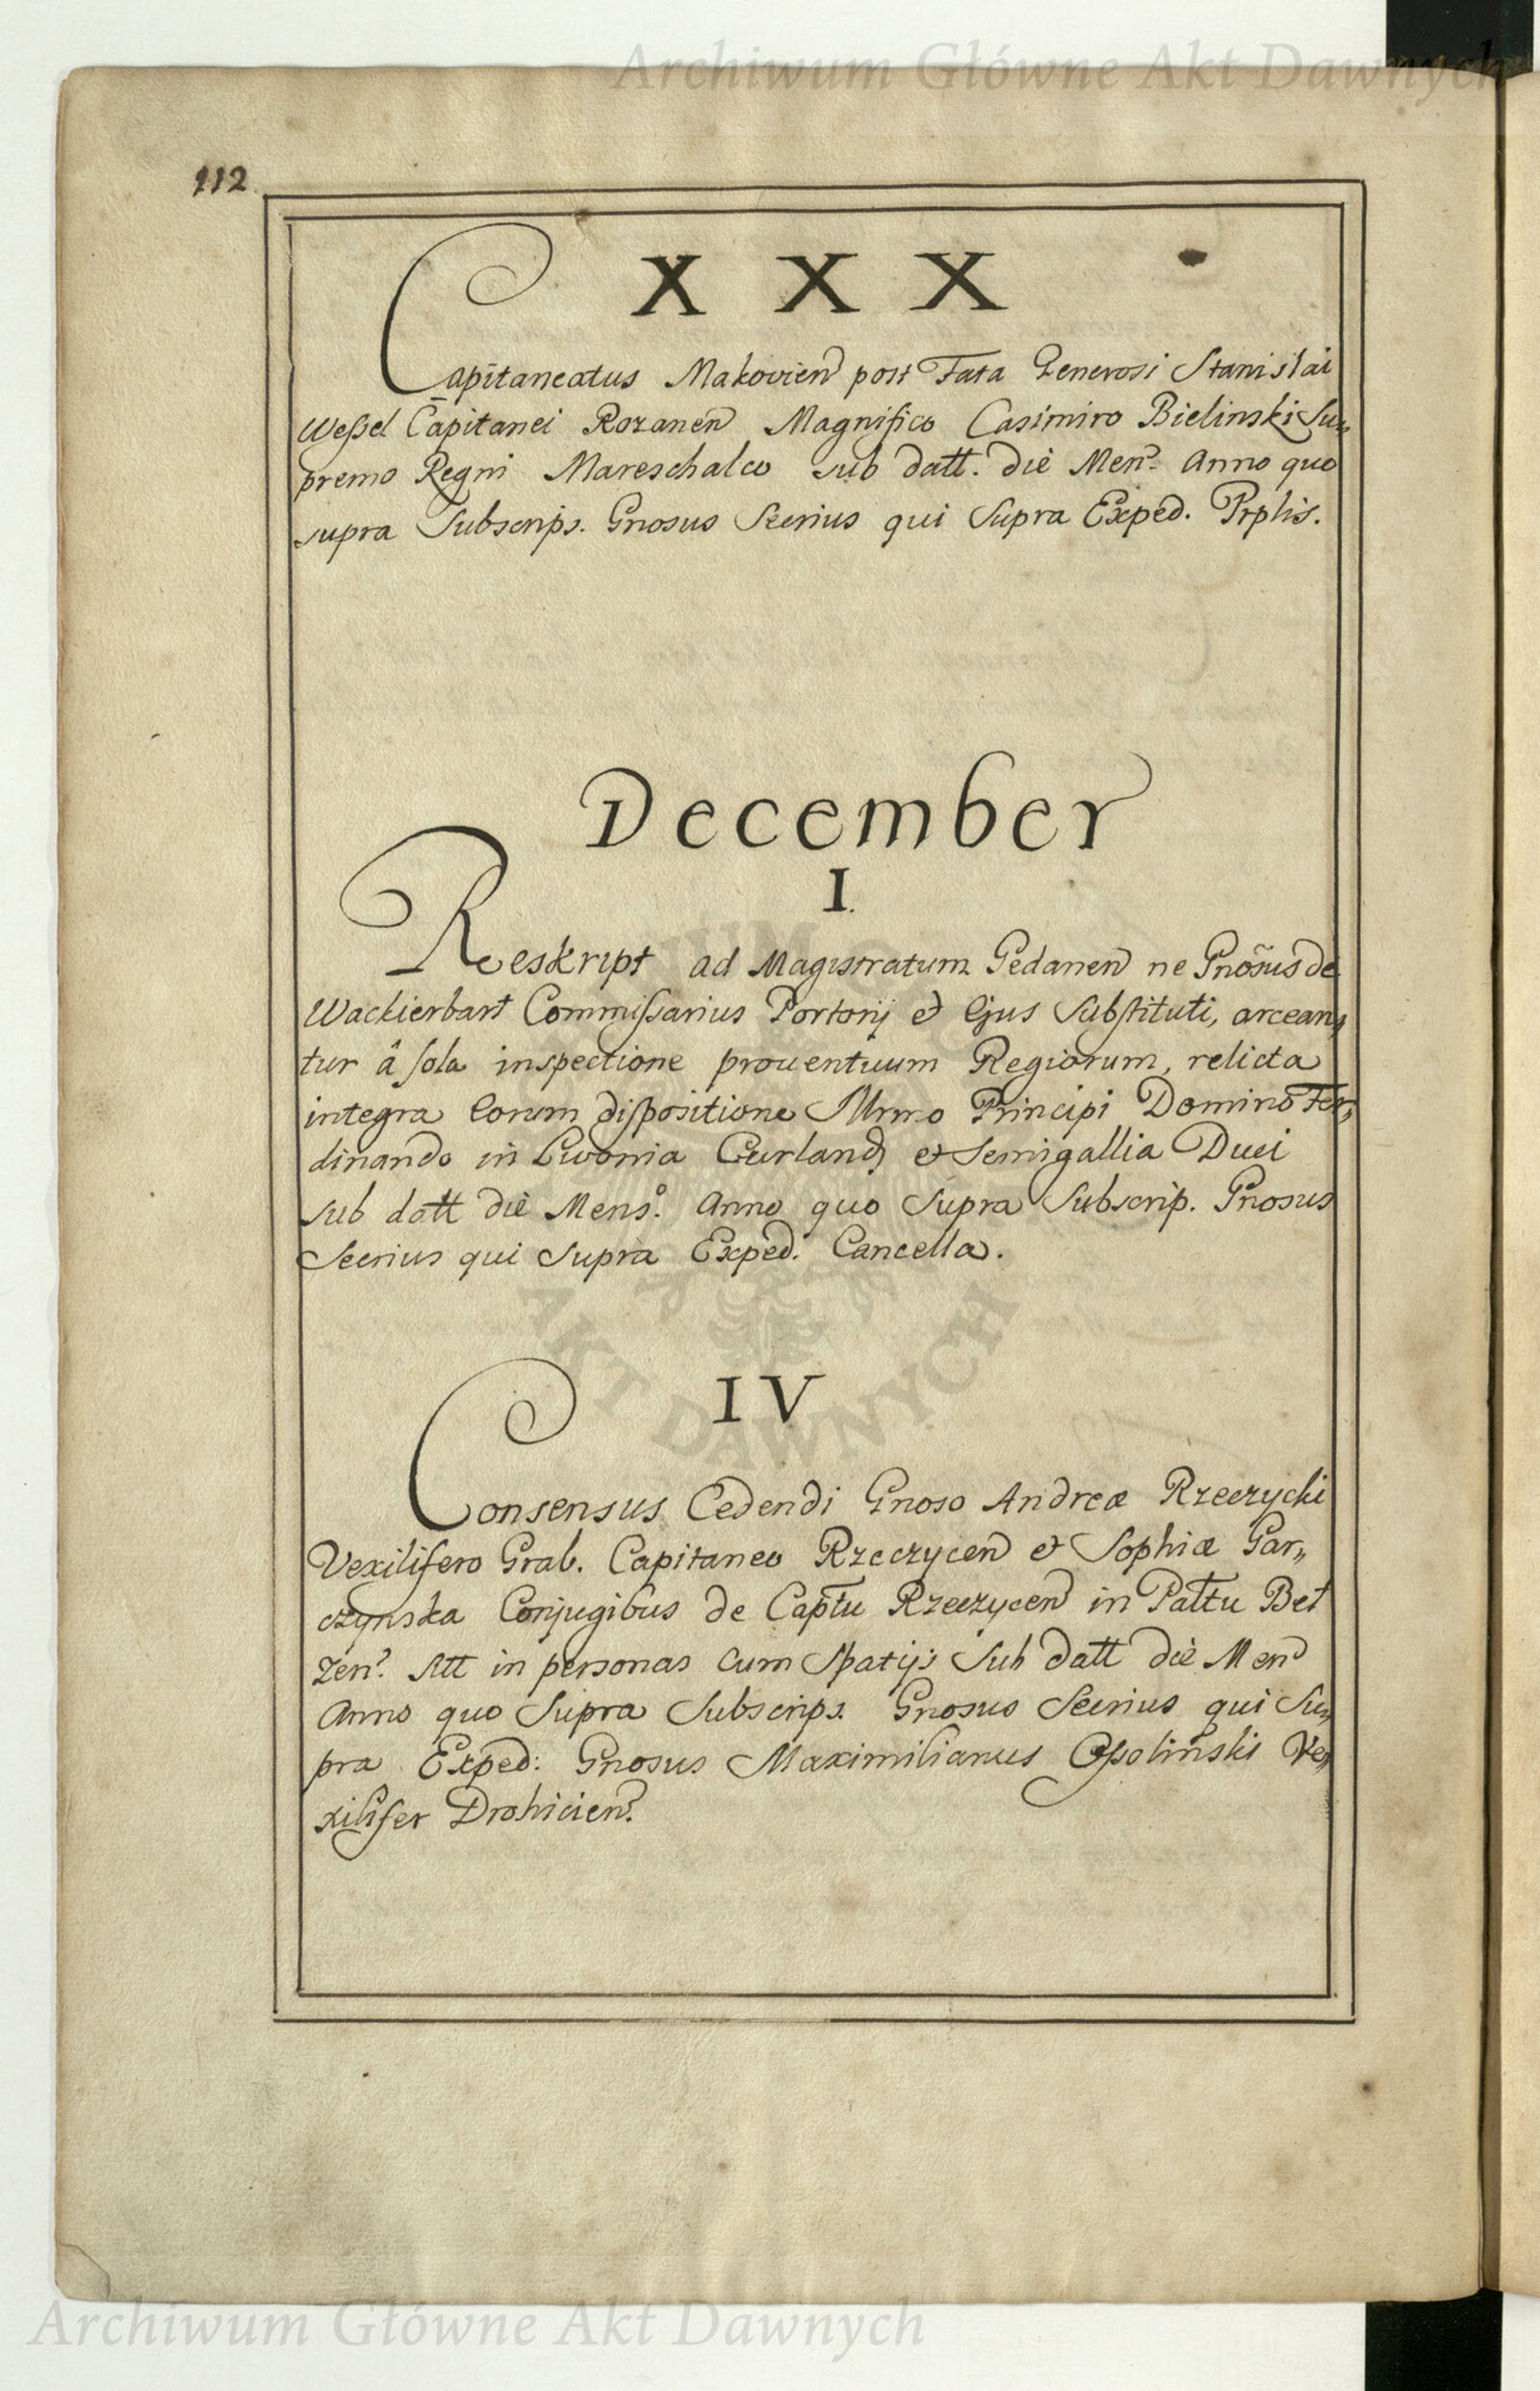 Archiwum Główne Akt Dawnych
112
X X X
Capitaneatus Makovien post Fata Generosi Stanislai
Weſsel Capitanei Rozanen Magnifico Casimiro Bielinski Su„
premo Regni Mareschalco sub datt. die Men. Anno quo
supra Subscrips. Gnosus Secrius qui Supra Exped. Prplis.
December
I.
Reskript ad Magistratum Gedanen ne Gnosus de
Wackierbart Commiſsarius Portorij et Ejus Subſtituti, arcean„
tur â ſola inspectione prouentuum Regiorum, relicta
integra Eorum diſpositione Illrmo Principi Domino Fer„
dinando in Livonia Curland et Semigallia Duci
sub datt die Mens. Anno quo Supra Subscrip. Gnosus
Secrius qui Supra Exped. Cancella.
IV
Consensus Cedendi Gnoso Andreæ Rzeczycki
Vexilifero Grab. Capitaneo Rzeczycen et Sophiæ Gar„
czynska Conjugibus de Captu Rzeczycen in Pattu Bel
zen. Att in personas cum Spatijs Sub datt die Men
Anno quo Supra Subscrips. Gnosus Secrius qui Su„
pra Exped: Gnosus Maximilianus Oſsolinski Ve„
xilifer Drohicien.
AKT DAWNYCH
Archiwum Główne Akt Dawnych